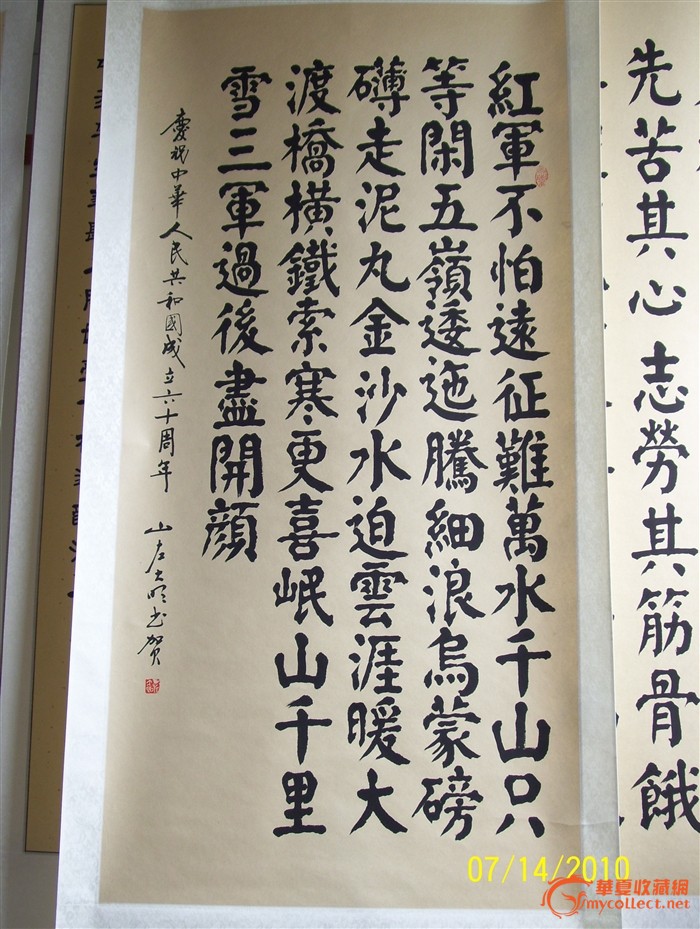 紅軍不怕遠征難萬水千山只
等閑五嶺逶迤騰細浪烏蒙磅
礴走泥丸金沙水迫雲涯暖大
渡橋橫鐵索寒更喜岷山千里
雪三軍過後盡開顔
慶祝中華人民共和國成立六十周年 山左大明书賀
先苦其心志勞其筋骨餓
07/14/2010
華夏收藏網
mycollect.net